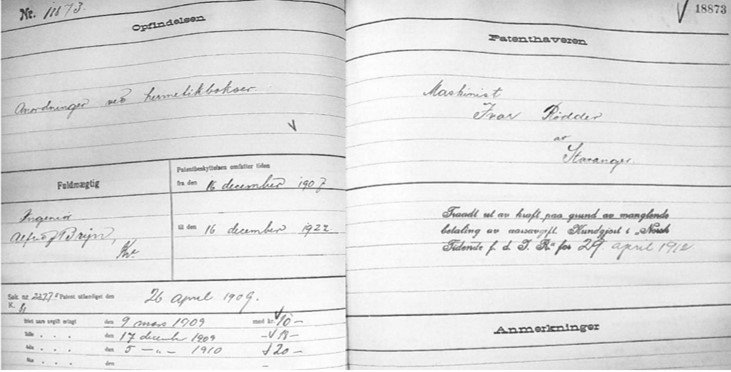 Nr. 18873.
Opfindelsen
Anordninger ved hermetikbokser.
Fuldmægtig
Ingeniør
Alfred J Bryn,
Patentbeskyttelsen omfatter tiden
fra den 16 december 1907
til den 16 december 1922
Søk. nr. Patent utfærdiget den 26 april 1909.
K.
den 9 mars 1909 med kr. 10 –
den 17 december 1909 – 15 –
den 5 – „ – 1910 20 –
den –
18873
Patenthaveren
Maskinist
Ivar Rødder
av
Stavanger.
Traadt ut av kraft paa grund av manglende
betaling av aarsavgift. Kundgjort i "Norsk
Tidende f. d. I. R" for 29 april 1912
Anmerkninger